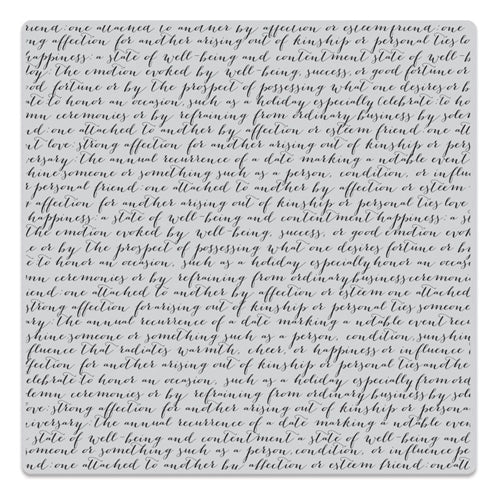 riend: one attached to another by affection or esteem friend: one
ng affection for another arising out of kinship or personal ties lo
happiness: a state of well-being and contentment state of well-b
loy: the emotion evoked by well-being, success, or good fortune or
od fortune or by the prospect of possessing what one desires or b
ate to honor an occasion, such as a holiday especially Celebrate to ho
mn ceremonies or by refraining from ordinary business by sole
nd: one attached to another by affection or esteem friend: one att
nt love: strong affection for another arising out of kinship or pers
versary: the annual recurrence of a date marking a notable event
hine someone or something such as a person, condition, or influe
r personal friend: one attached to another by affection or esteem
n affection for another arising out of kinship or personal ties love
happiness: a state of well-being and contentment happiness: a s
the emotion evoked by well-being, success, or good emotion evok
e or by the prospect of possessing what one desires fortune or b
e to honor an occasion, such as a holiday especially honor an occas
mn ceremonies or by refraining from ordinary business ceremoni
iend: one attached to another by affection or esteem one attached
strong affection for arising out of kinship or personal ties someone
ary: the annual recurrence of a date marking a notable event recu
shine someone or something such as a person, condition, sunshin
fluence that radiates warmth, cheer, or happiness or influence
ffection for another arising out of kinship or personal ties another
elebrate to honor an occasion, such as a holiday especially from ord
lemn ceremonies or by refraining from ordinary business by sol
ove: strong affection for another arising out of kinship or persona
iversary: the annual recurrence of a date marking a notable even
: state of well-being and contentment a state of well-being and
omeone or something such as a person, condition, or influence pe
nd: one attached to another by affection or esteem friend: one att